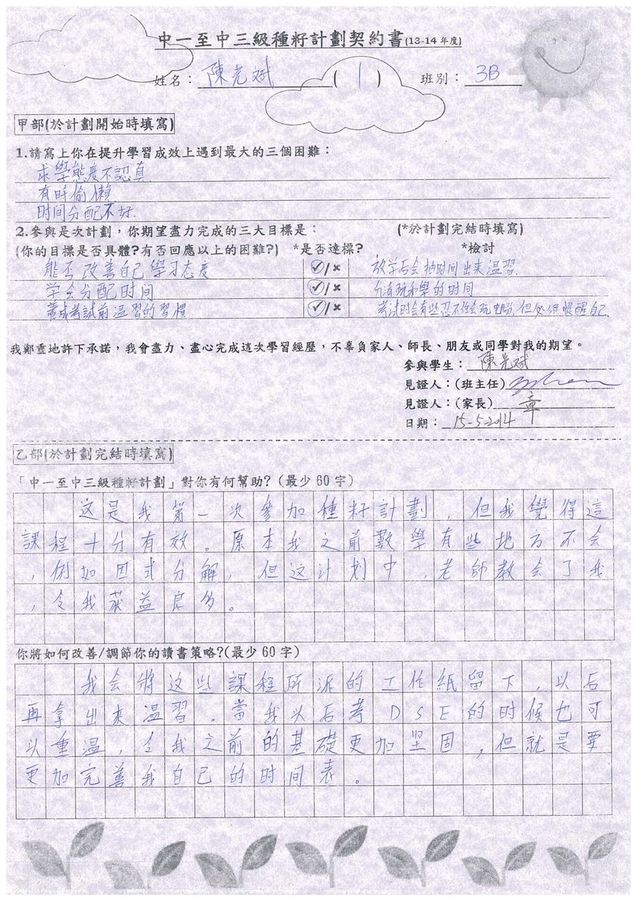 中一至中三級種籽計劃契約書(13-14年度)
姓名：陳光斌 ( 1 ) 班別：3B
甲部(於計劃開始時填寫)
1.請寫上你在提升學習成效上遇到最大的三個困難：
求學態度不認真
有时偷懶
时间分配不好.
2.參與是次計劃，你期望盡力完成的三大目標是： (*於計劃完結時填寫)
(你的目標是否具體?有否回應以上的困難?) *是否達標? *檢討
能否改善自己學习态度 ✓/× 放学后会抽时间出來溫習.
学会分配时间 ✓/×
養成考試前溫習的習慣 ✓/×
我鄭重地許下承諾，我會盡力、盡心完成這次學習經歷，不辜負家人、師長、朋友或同學對我的期望。
參與學生：陳光斌
見證人：(班主任)
見證人：(家長) 章
日期：15-5-2014
乙部(於計劃完結時填寫)
「中一至中三級種籽計劃」對你有何幫助?（最少60字）
这是我第一次參加種籽計劃，但我覺得這
課程十分有效。原本我之前數學有些地方不会
，例如因式分解，但这计划中，老師教会了我
，令我获益良多。
你將如何改善/調節你的讀書策略?(最少60字)
我会將这些課程所派的工作紙留下，以后
再拿出来溫習。當我以后考DSE的时候也可
以重溫，令我之前的基礎更加坚固，但就是要
更加完善我自己的时间表。